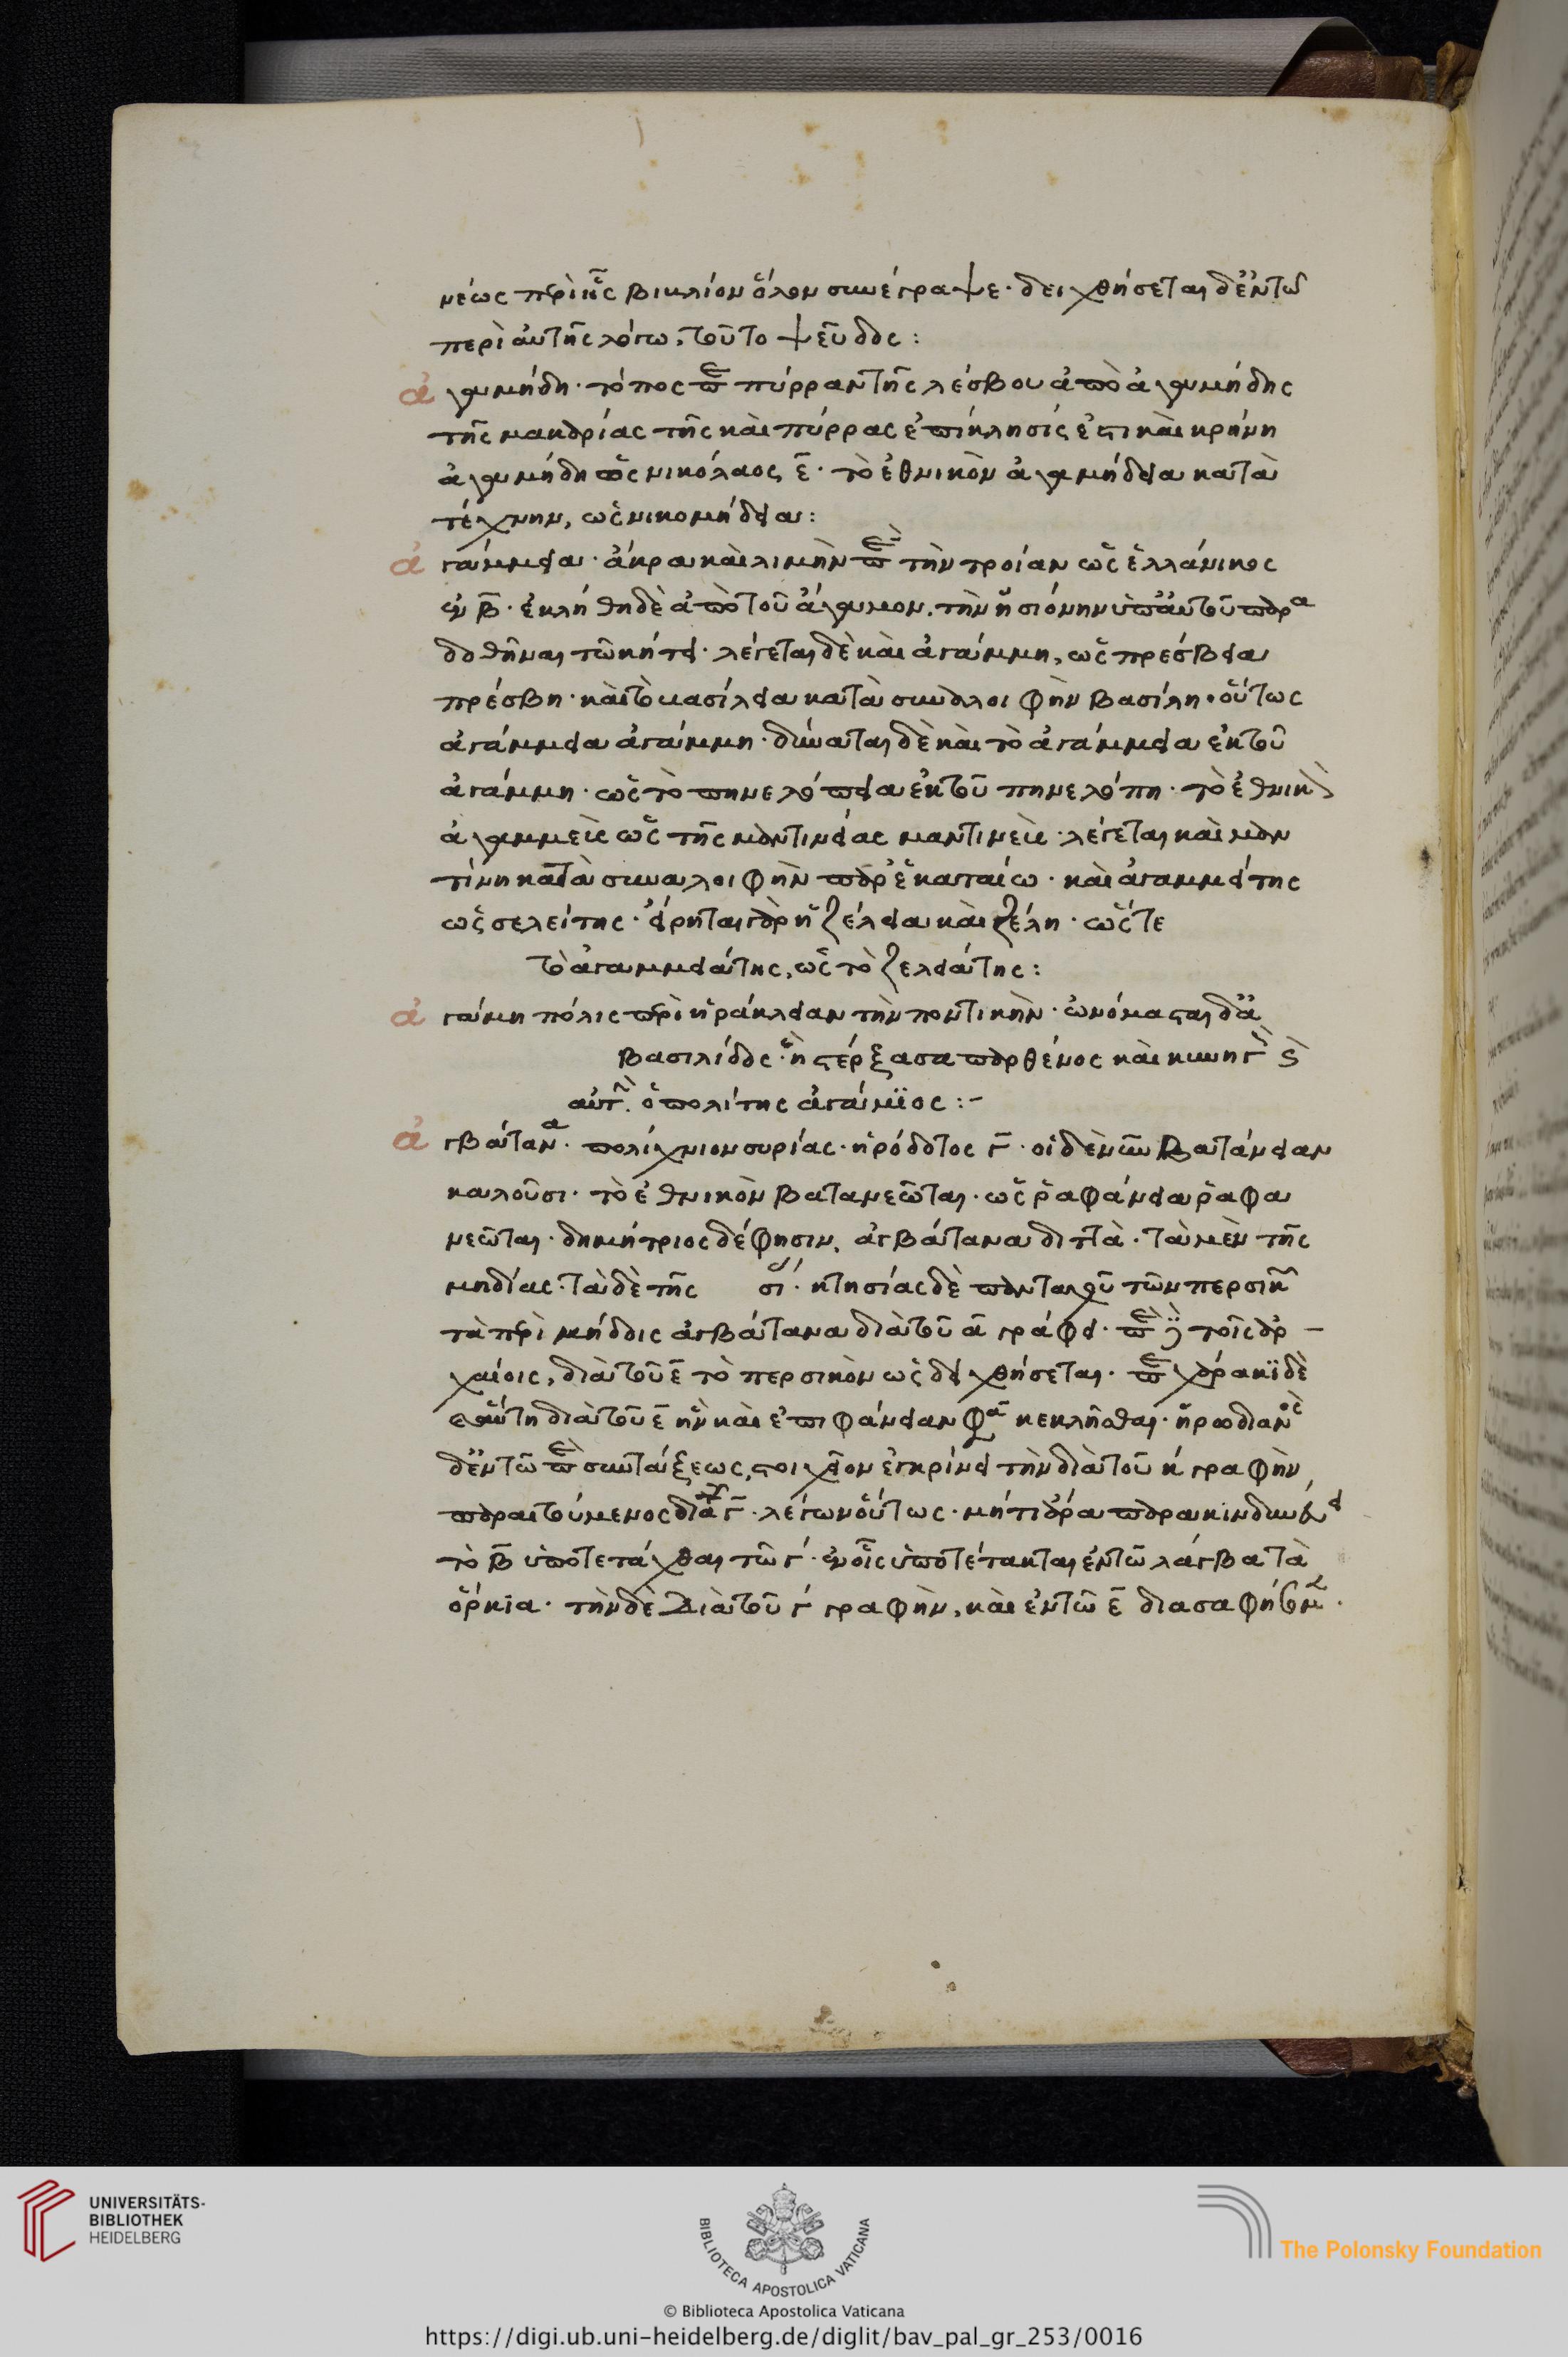 νέως περὶ ἧς βιβλίον ὅλον συνέγραψε· δειχθήσεται δἐν τῶ
περὶ αὐτῆς λόγω, τοῦτο ψεῦδος:
ἀγαμήδη· τόπος περὶ πύρραν τῆς λέσβου ἀπὸ ἀγαμήδης
τῆς μακαρίας τῆς καὶ πύρρας ἐπίκλησίς ἐστι καὶ κρήνη
ἀγαμήδη ὡς νικόλαος ε̄· τὸ ἐθνικὸν ἀγαμήδεια κατὰ
τέχνην, ὡς νικομήδεια:
ἀγάμμεια· ἄκρα καὶ λιμὴν περὶ τὴν τροίαν ὡς ἑλλάνικος
ἐν β̄· ἐκλήθη δὲ ἀπὸ τοῦ ἄγαμον. τὴν ἡσιόνην ὑπ' αὐτοῦ παρα
δοθῆναι τῶ κήτει· λέγεται δὲ καὶ ἀγάμμη, ὡς πρέσβεια
πρέσβη· καὶ τὸ βασίλεια κατὰ συναλοιφὴν βασίλη· οὕτως
ἀγάμμεια ἀγάμμη· δύναται δὲ καὶ τὸ ἀγάμμεια ἐκ τοῦ
ἀγάμμη· ὡς τὸ πηνελόπεια ἐκ τοῦ πηνελόπη· τὸ ἐθνικὸν
ἀγαμμεὺς ὡς τῆς μαντινείας μαντινεὺς· λέγεται καὶ μαν
τίνη κατὰ συναλοιφὴν παρ' ἑκαταίω· καὶ ἀγαμμείτης
ὡς σελείτης· εἴρηται γὰρ ἡ ζέλεια καὶ ζέλη· ὥστε
τὸ ἀγαμμεάτης, ὡς τὸ ζελεάτης:
ἀγάμη πόλις περὶ ἡράκλειαν τὴν ποντικὴν· ὠνόμασται δ' ἀ
βασιλίδος· ἣ στέρξασα παρθένος καὶ
ὁ πολίτης ἀγάμϊος :-
ἀγβάτανα· πολίχνιον συρίας· ἡρόδοτος γ̄· οἱ δὲ νῦν βατάνειαν
καλοῦσι· τὸ ἐθνικὸν βατανεῶται· ὡς ῥαφάνεια ῥαφα
νεῶται· δημήτριος δέ φησιν, ἀγβάτανα διττὰ· τὰ μὲν τῆς
μηδίας· τὰ δὲ τῆς συ· κτησίας δὲ πανταχοῦ τῶν περσικῶν
τὰ περὶ μήδοις ἀγβάτανα διὰ τοῦ ᾱ γράφει· παρὰ δὲ τοῖς ἀρ –
χαίοις, διὰ τοῦ ε̄ τὸ περσικὸν ὡς δειχθήσεται·
αὕτη διὰ τοῦ ε̄ ἣν καὶ ἐπιφάνειαν φασὶ κεκλῆσθαι· ἡρωδιανὸς
δ' ἐν τῶ περὶ συντάξεως, στοιχείων ἐγκρίνει τὴν διὰ τοῦ κ γραφὴν
παραιτούμενος διὰ γ̄· λέγων οὕτως· μήτι ἄρα παρακινδυνεύει
τὸ β̄ ὑποτετάχθαι τῶ γ· ἐν οἷς ὑποτέτακται ἐν τῶ λάγβατα
ὅρκια· τὴν δὲ διὰ τοῦ γ γραφὴν, καὶ ἐν τῶ ε̄
UNIVERSITÄTS-
BIBLIOTHEK
HEIDELBERG
BIBLIOTECA APOSTOLICA VATICANA
The Polonsky Foundation
© Biblioteca Apostolica Vaticana
https://digi.ub.uni-heidelberg.de/diglit/bav_pal_gr_253/0016